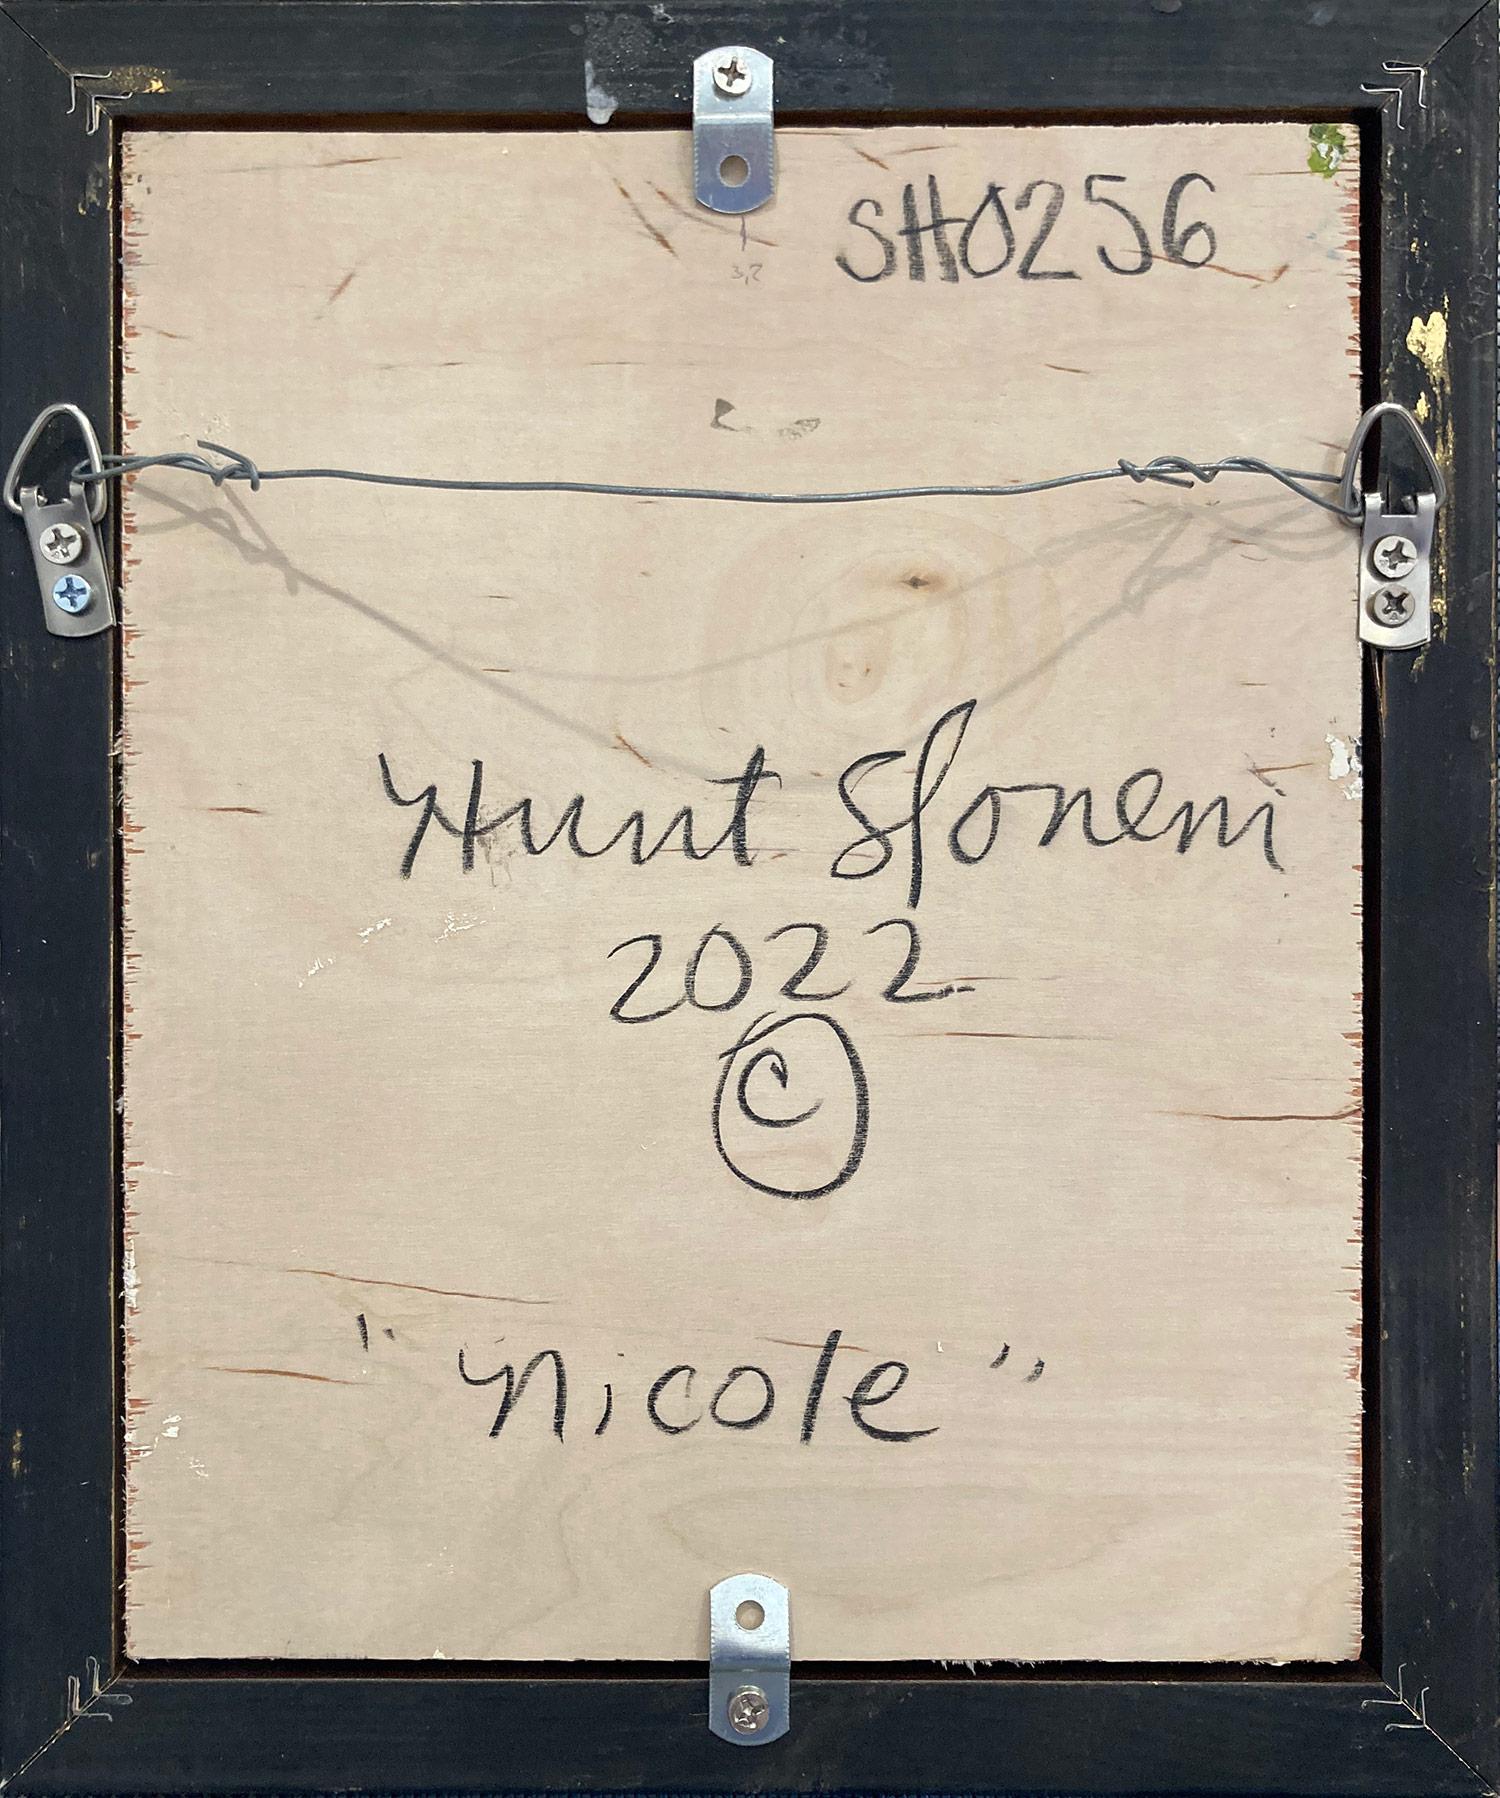 SH0256
Hunt Slonem
2022
©
"Nicole"